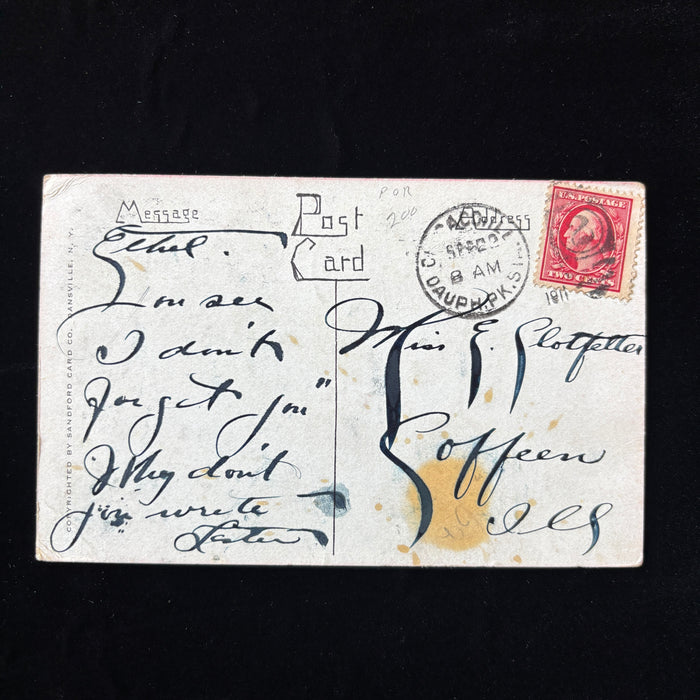 Message
Post
Card
Address
POR
200
8 AM
DAUPH. PK. S
1911
U.S. POSTAGE
TWO CENTS
COPYRIGHTED BY SANDFORD CARD CO. DANSVILLE, N. Y.
Ethel.
You see
I don't
forget you"
Why don't
"you" write
Lester
Miss E. Clotfelter
Coffeen
Ill